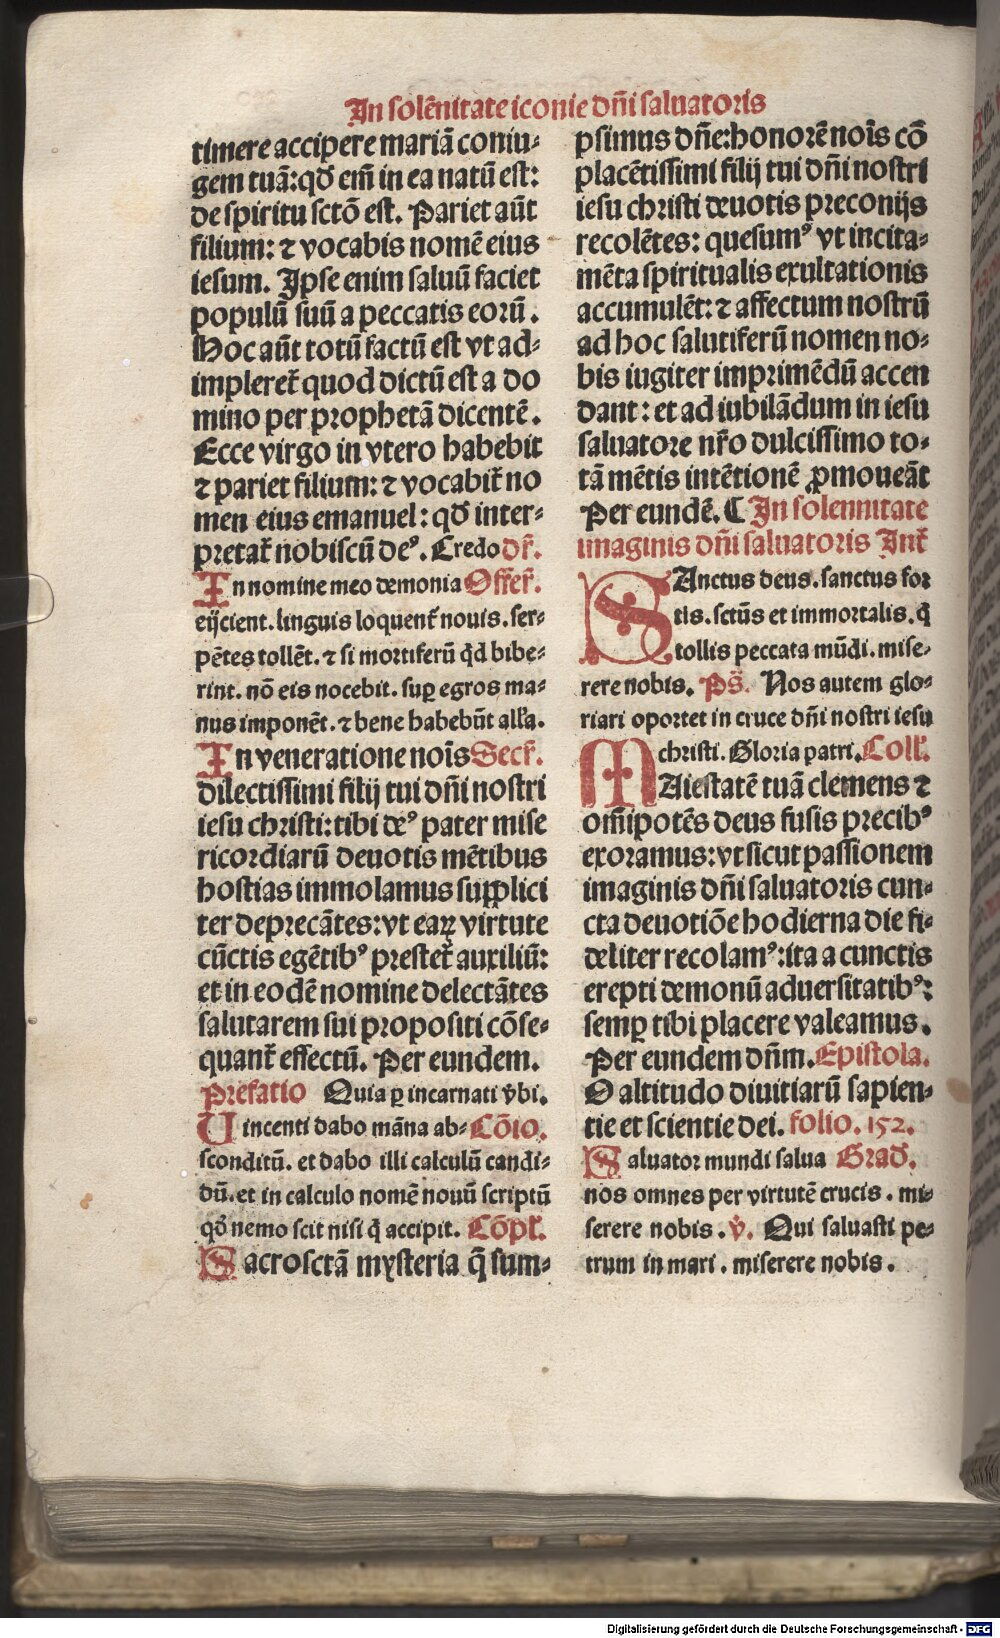 In solēnitate iconie dn̄i saluatoris
timere accipere mariā coniu-
gem tuā: qđ em̄ in ea natū est:
de spiritu sctō est. Pariet aūt
filium: ⁊ vocabis nomē eius
iesum. Ipse enim saluū faciet
populū suū a peccatis eorū.
Hoc aūt totū factū est vt ad-
impleret᷑ quod dictū est a do
mino per prophetā dicentē.
Ecce virgo in vtero habebit
⁊ pariet filium: ⁊ vocabit᷑ no
men eius emanuel: qđ inter-
pretat᷑ nobiscū deꝰ. Credo Of᷑.
In nomine meo demonia Offer᷑.
eijcient. linguis loquent᷑ nouis. ser-
pētes tollēt. ⁊ si mortiferū qd̄ bibe-
rint. nō eis nocebit. suꝑ egros ma-
nus imponēt. ⁊ bene habebūt all'a.
In veneratione noīs Secr᷑.
dilectissimi filij tui dn̄i nostri
iesu christi: tibi deꝰ pater mise
ricordiarū deuotis mētibus
hostias immolamus supplici
ter deprecātes: vt eaꝝ virtute
cūctis egētibꝰ prestet᷑ auxiliū:
et in eodē nomine delectātes
salutarem sui propositi cōse-
quant᷑ effectū. Per eundem.
Prefatio Quia ꝑ incarnati v̄bi.
Uincenti dabo māna ab- Cōio.
sconditū. et dabo illi calculū candi-
dū. et in calculo nomē nouū scriptū
qō nemo scit nisi q̄ accipit. Cōpl'.
Sacrosctā mysteria q̄ sum-
psimus dn̄e: honorē noīs cō
placētissimi filij tui dn̄i nostri
iesu christi deuotis preconijs
recolētes: quesumꝰ vt incita-
mēta spiritualis exultationis
accumulēt: ⁊ affectum nostrū
ad hoc salutiferū nomen no-
bis iugiter imprimēdū accen
dant: et ad iubilādum in iesu
saluatore nr̄o dulcissimo to-
tā mētis intētionē ꝓmoueāt
Per eundē. ¶ In solennitate
imaginis dn̄i saluatoris Int᷑
SAnctus deus. sanctus for
tis. sctūs et immortalis. q̄
tollis peccata mūdi. mise-
rere nobis. Ps̄. Nos autem glo-
riari oportet in cruce dn̄i nostri iesu
christi. Gloria patri. Coll'.
MAiestatē tuā clemens ⁊
om̄ipotēs deus fusis precibꝰ
exoramus: vt sicut passionem
imaginis dn̄i saluatoris cun-
cta deuotiōe hodierna die fi-
deliter recolamꝰ: ita a cunctis
erepti demonū aduersitatibꝰ:
semꝑ tibi placere valeamus.
Per eundem dn̄m. Epistola.
O altitudo diuitiarū sapien-
tie et scientie dei. folio. 152.
Saluator mundi salua Grad̄.
nos omnes per virtutē crucis. mi-
serere nobis. v̄. Qui saluasti pe-
trum in mari. miserere nobis.
Digitalisierung gefördert durch die Deutsche Forschungsgemeinschaft - DFG